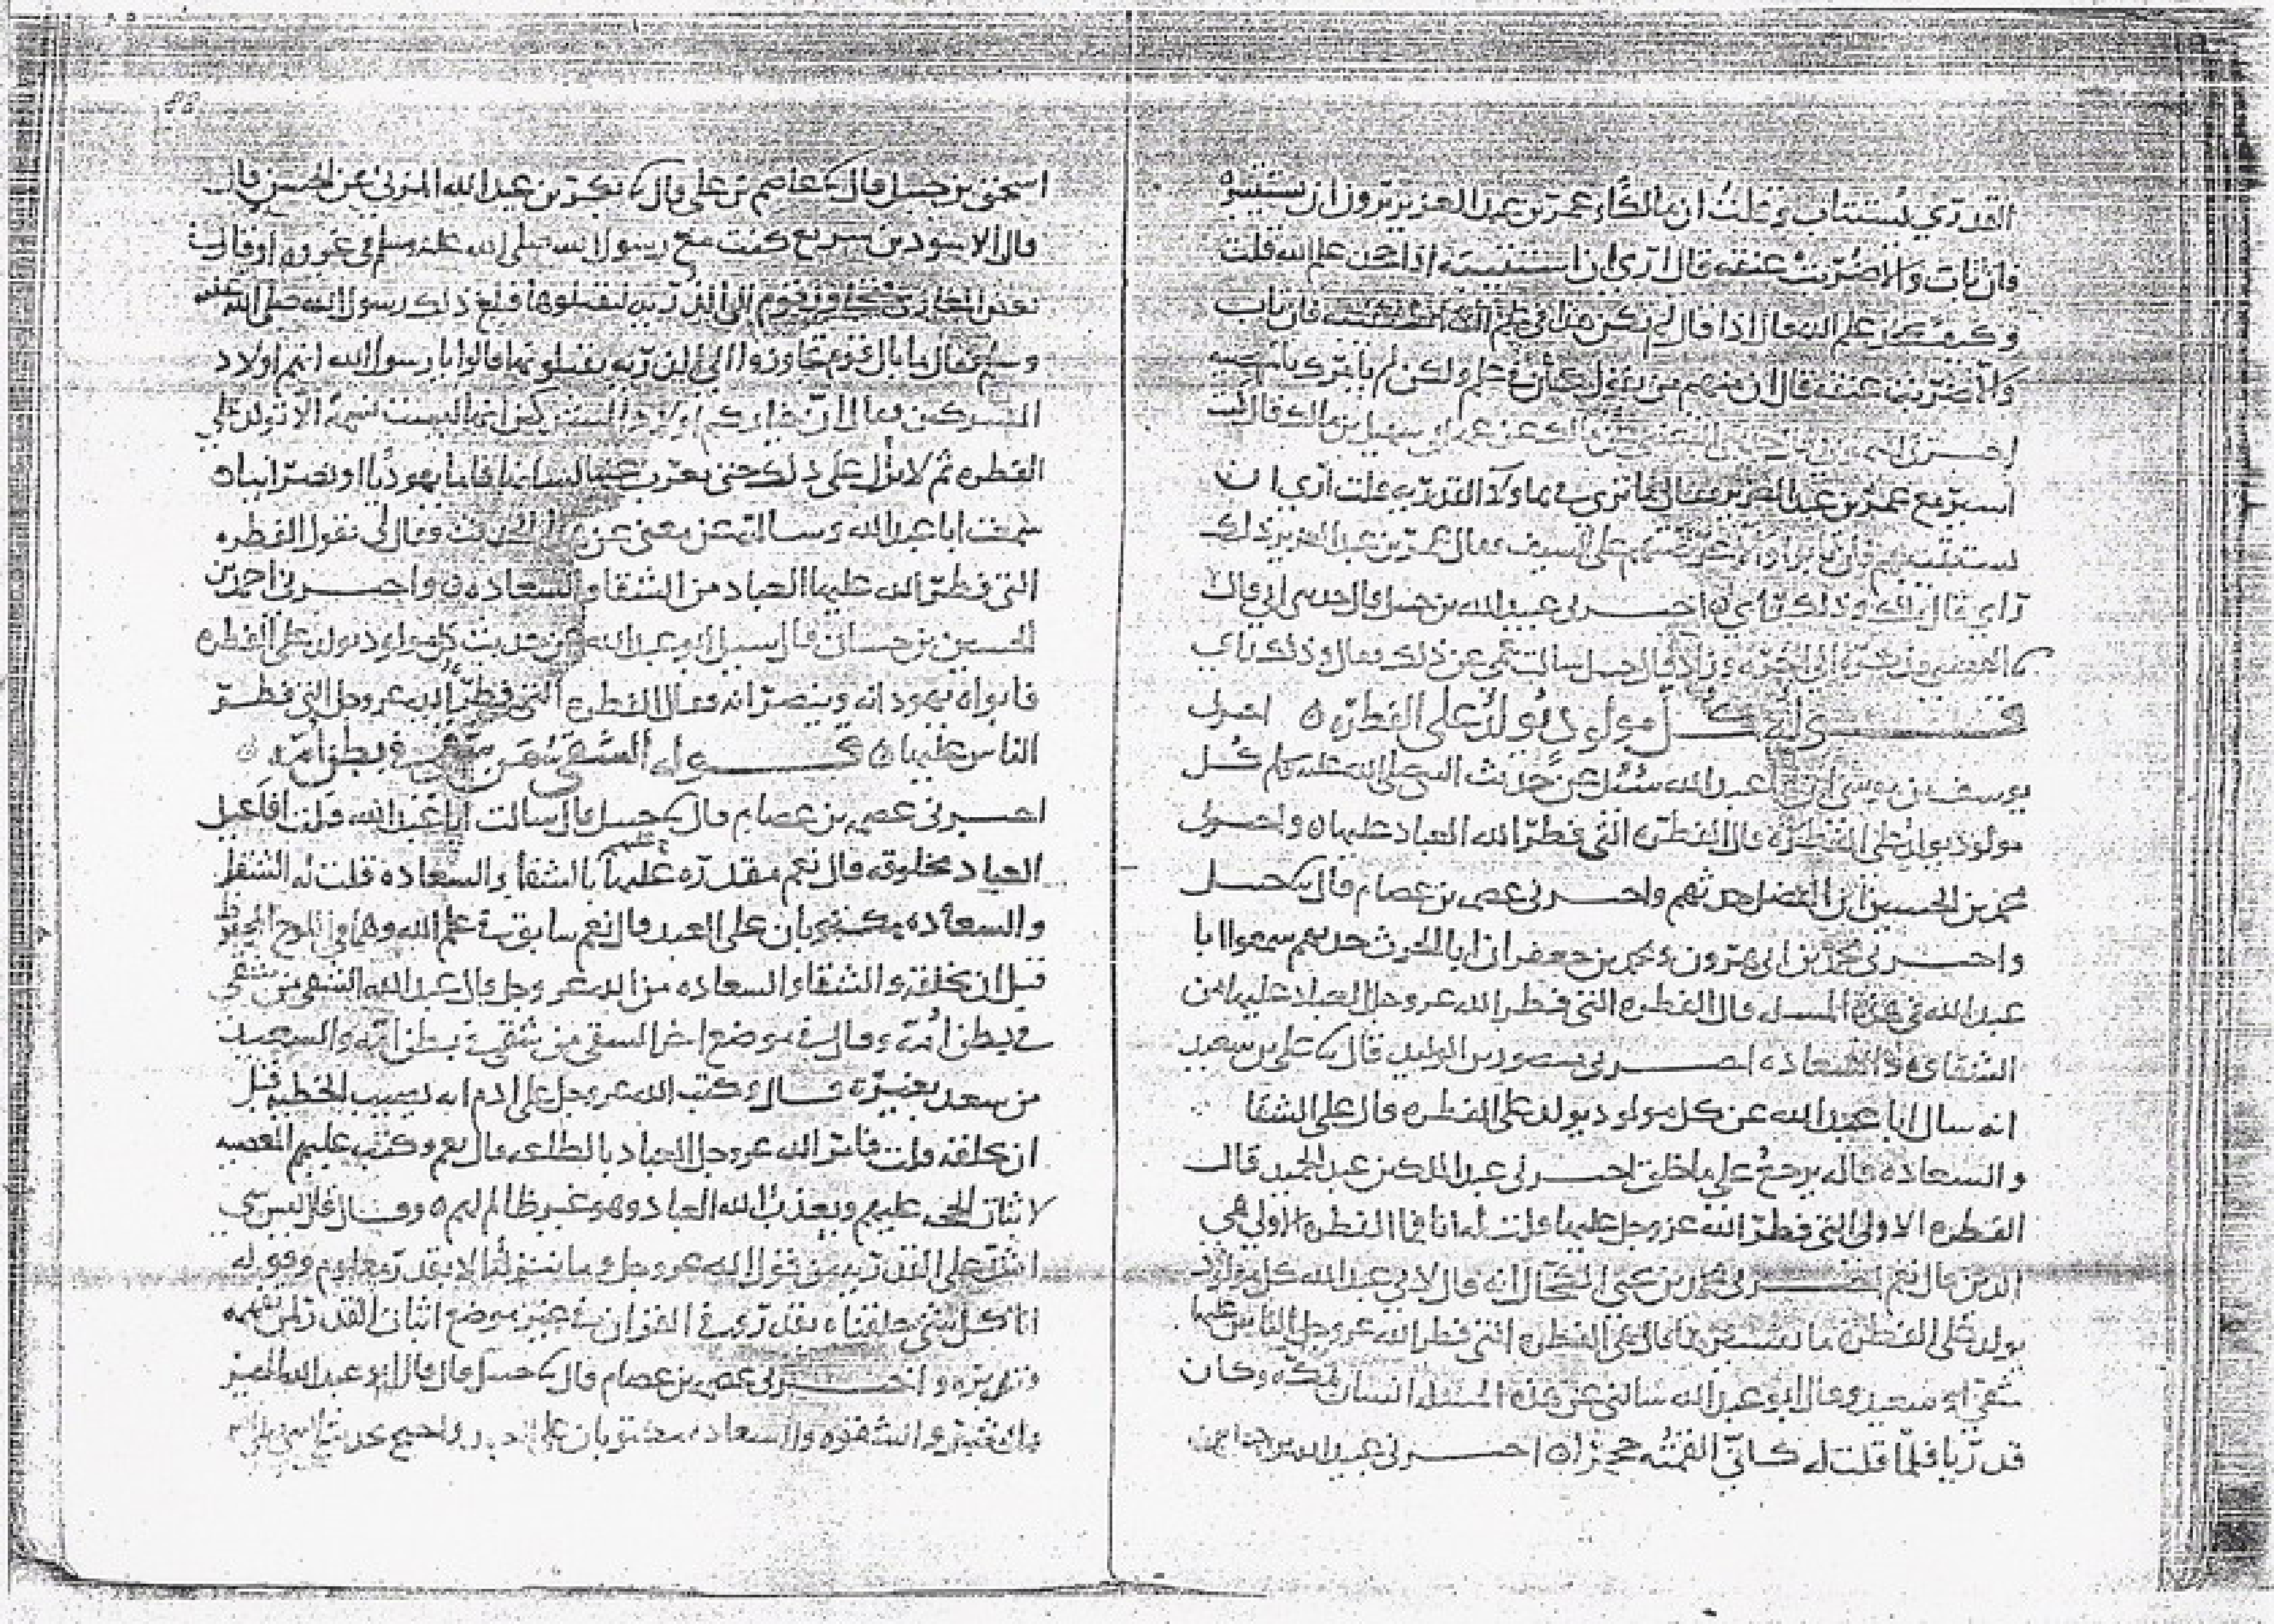 القدري يستتاب وقلت ان مالكا وعمر بن عبد العزيز يرون ان يستتيبوه
فان تاب والا ضربت عنقه قال ارى ان استتيبه اذا جحد علم الله قلت
وكيف يجحد علم الله قال اذا قال لم يكن هذا في علم الله استتيبه فان تاب
والا ضربت عنقه قال ان منهم من يقول كان في علمه ولكن لم يأمرك بالمعصيه
مالك عن عمه ابي سهيل بن مالك قال كنت
اسير مع عمر بن عبد العزيز فقال ما ترى في هاولا القدريه قلت ارى ان
تستتيبهم فان تابوا والا عرضتهم على السيف فقال عمر بن عبد العزيز ذلك
رأي قال مالك وذلك رأي ه اخبرني عبيد الله بن حنبل قال حدثني ابي قال
وزاد قال حنبل سالت عمي عن ذلك فقال وذلك راي
قوله كل مولود يولد على الفطره ه اخبرني
يوسف بن موسى ان ابا عبد الله سئل عن حديث النبي صلى الله عليه وسلم كل
مولود يولد على الفطره قال الفطره التي فطر الله العباد عليها ه واخبرني
محمد بن الحسين ان الفضل حدثهم واخبرني عصمه بن عصام قال حنبل
واخبرني محمد بن ابي هرون ومحمد بن جعفر ان ابا الحرث حدثهم سمعوا ابا
عبد الله في هذه المسله قال الفطره التي فطر الله عز وجل العباد عليها من
الشقاء والسعاده اخبرني منصور بن الوليد قال علي بن سعيد
انه سال ابا عبد الله عن كل مولود يولد على الفطره قال على الشقا
والسعاده قال يرجع على ما خلق اخبرني عبد الملك بن عبد الحميد قال
الفطره الاولى التي فطر الله عز وجل عليها قلت له انا فما الفطره الاولى هي
الدين قال نعم اخبرني محمد بن يحيى الكحال انه قال لابي عبد الله كل مولود
يولد على الفطره ما تفسيرها قال هي الفطره التي فطر الله عز وجل الناس عليها
شقي او سعيد وقال ابو عبد الله سالني عن هذه المسله انسان بمكه وكان
قدريا فلما قلت له كاني القمته حجرا ه اخبرني عبيد الله بن حنبل
اسحق بن حنبل قال عاصم بن علي قال بكر بن عبد الله المزني عن الحسن قال
قال الاسود بن سريع كنت مع رسول الله صلى الله عليه وسلم في غزوه او قال في
بعض المغازي فتجاوز قوم الى الذريه ليقتلوها فبلغ ذلك رسول الله صلى الله عليه
وسلم فقال ما بال قوم تجاوزوا الى الذريه يقتلونها قالوا يا رسول الله انهم اولاد
المشركين فقال ان خياركم اولاد المشركين انها ليست نسمه الا تولد على
الفطره ثم لا تزل على ذلك حتى يعرب عنها لسانها فاما يهوديا او نصرانيا ه
سمعت ابا عبد الله وسالته عن معنى هذا الحديث فقال لي تقول الفطره
التي فطر الله عليها العباد من الشقا والسعاده ه واخبرني احمد بن
الحسين بن حسان قال سيل ابو عبد الله عن حديث كل مولود يولد على الفطره
فابواه يهودانه وينصرانه فقال الفطره التي فطر الله عز وجل التي فطر
الناس عليها ه قوله الشقي من شقي في بطن امه ه
اخبرني عصمه بن عصام قال حنبل قال سالت ابا عبد الله قلت افاعيل
العباد مخلوقه قال نعم مقدره عليهم بالشقا والسعاده قلت له الشقا
والسعاده مكتوبان على العبد قال نعم سابق في علم الله وهما في اللوح المحفوظ
قبل ان يخلقه والشقا والسعاده من الله عز وجل قال عبد الله الشقي من شقي
في بطن امه وقال في موضع اخر الشقي من شقي في بطن امه والسعيد
من سعد بغيره قال وكتب الله عز وجل على ادم انه يصيب الخطيه قبل
ان يخلقه قلت فامر الله عز وجل العباد بالطاعه قال نعم وكتب عليهم المعصيه
لاثبات الحجه عليهم ويعذب الله العباد وهو غير ظالم لهم ه وقال قال ليس شي
اشد على القدريه من قول الله عز وجل وما ننزله الا بقدر معلوم وقوله
انا كل شي خلقناه بقدر وفي القران في غير موضع اثبات القدر لمن تفهمه
وتدبره واخبرني عصمه بن عصام قال حنبل قال قال ابو عبد الله
والشقوه والسعاده مكتوبان على العبد واحتج بحديث